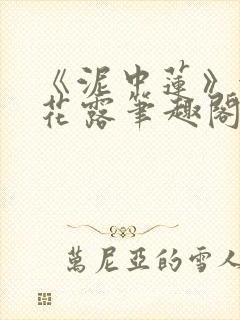 《泥中蓮》
花露筆趣閣
萬尼亞的雪人